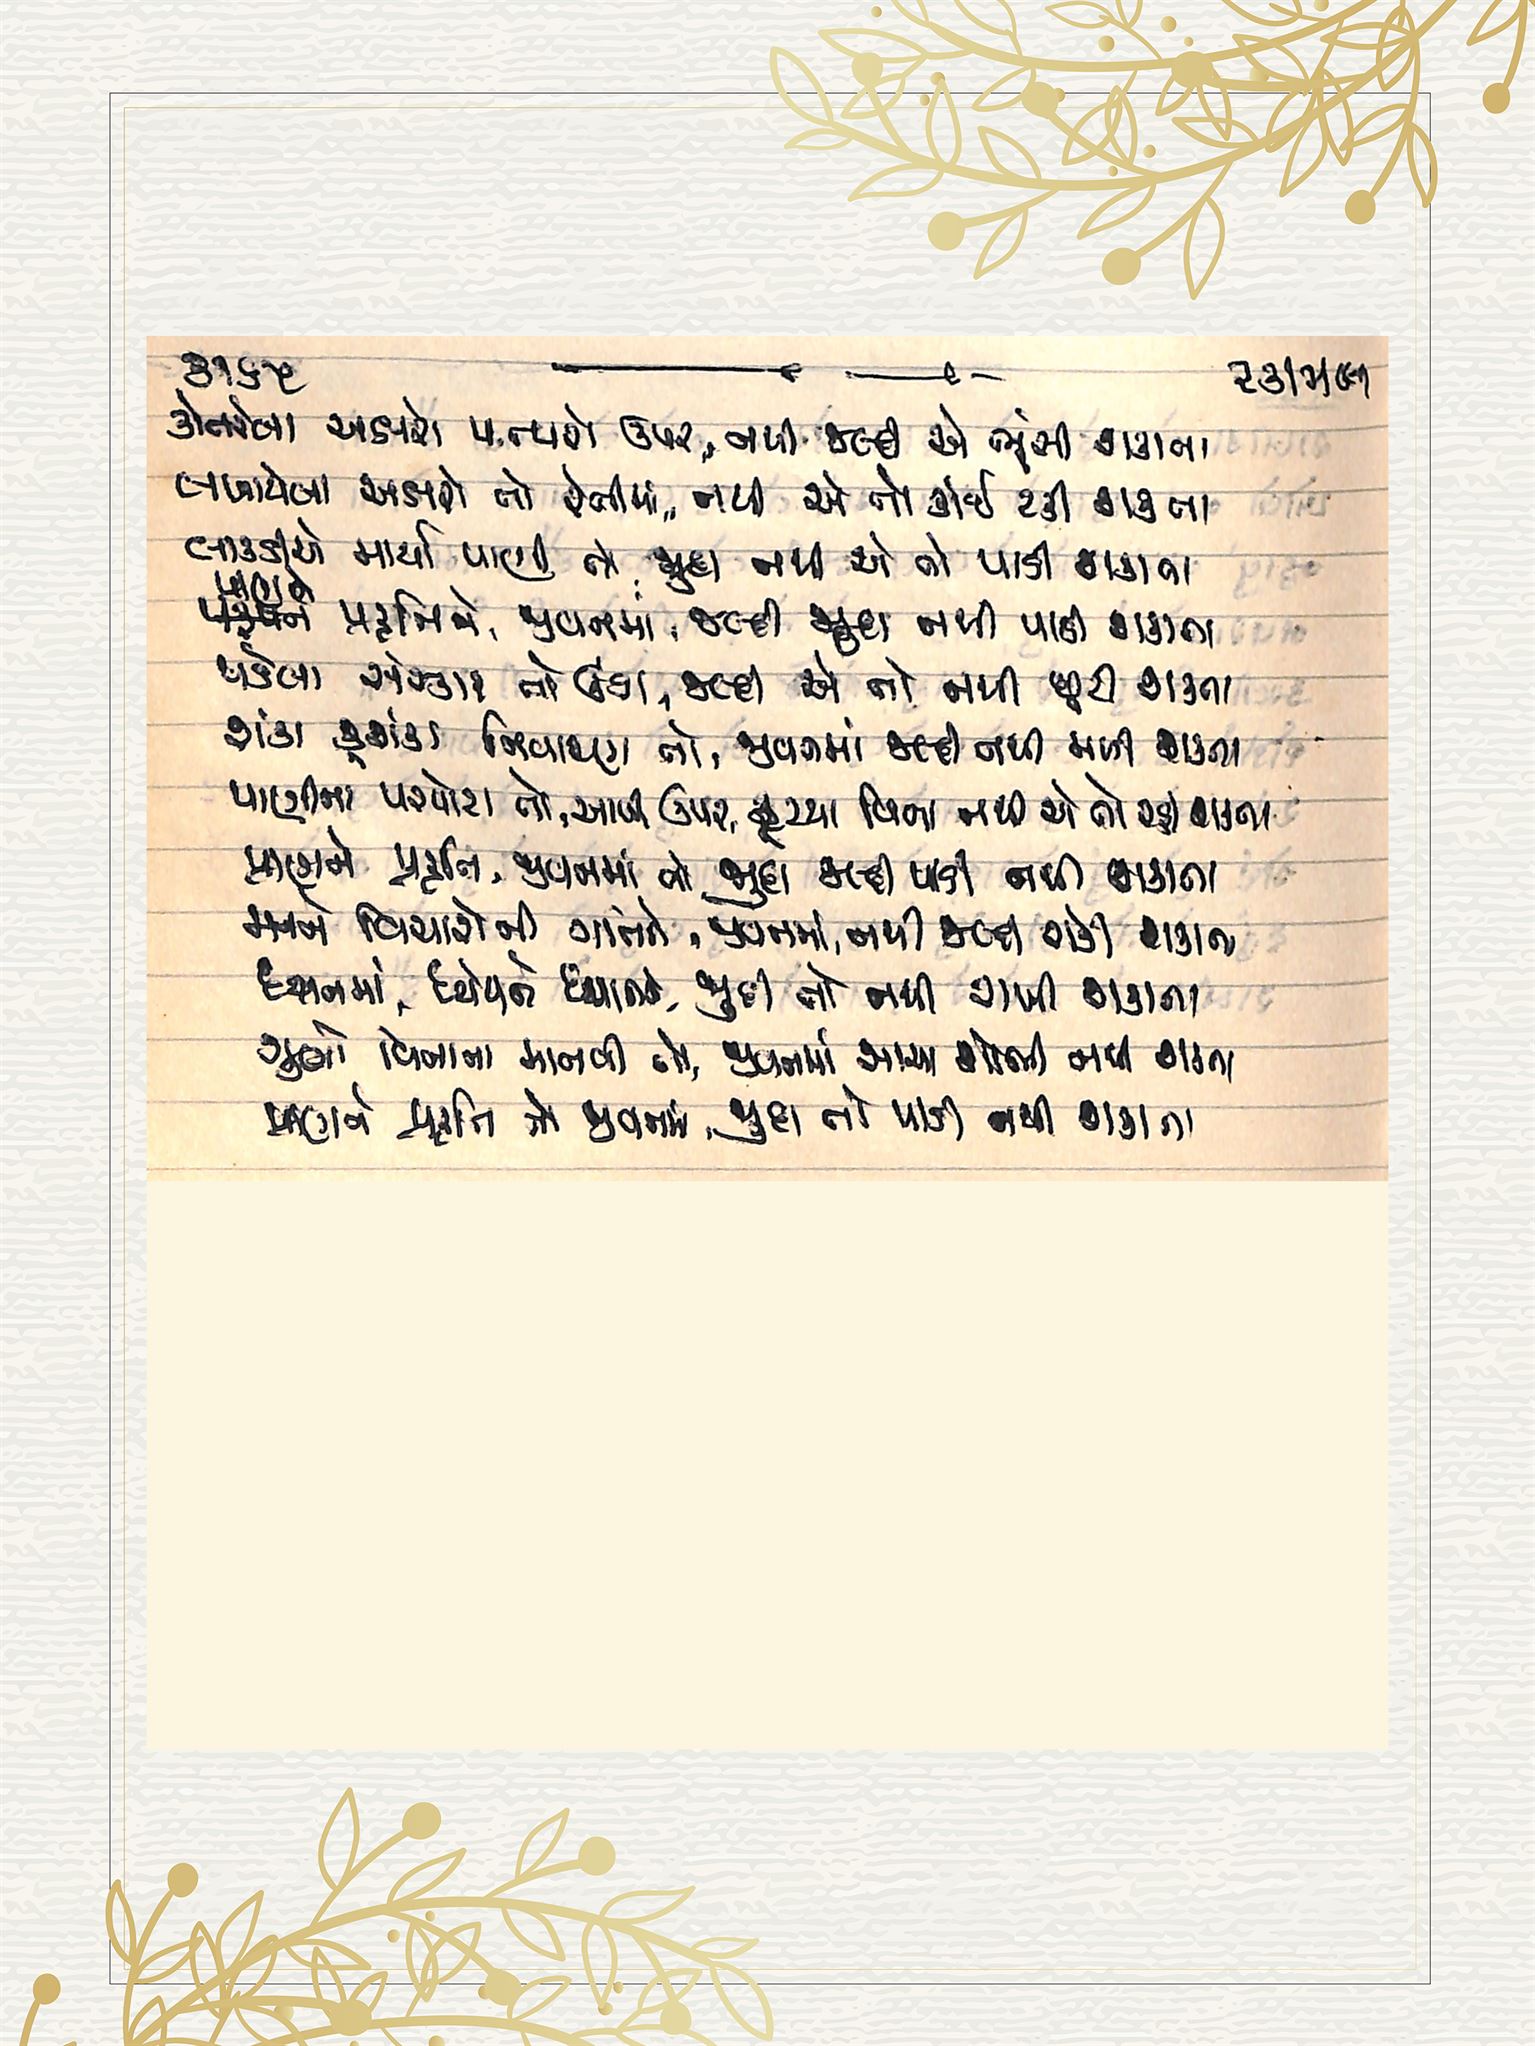 કોતરેલા અક્ષરો પથ્થરો ઉપર, નથી જલ્દી એ ભૂંસી શકાતા
લખાયેલા અક્ષરો તો રેતીમાં, નથી એ તો કોઈ ટકી શકતા
લાકડીયે માર્યા પાણી તો, જુદા નથી એ તો પાડી શકાતા
પ્રાણને પ્રકૃતિને, જીવનમાં, જલ્દી જુદા નથી પાડી શકાતા
થકેલા તો ઊંઘ, જલ્દી એ તો નથી શકતા
શંકા કુશંકા નિવારણ તો, જીવનમાં જલ્દી નથી મળી શકતા
પાણીના પરપોટા તો, પાણી ઉપર, ફૂટયા વિના નથી એ તો રહી શકતા
પ્રાણને પ્રકૃતિ, જીવનમાં તો જુદા જલ્દી પાડી નથી શકાતા
મનને વિચારોની ગતિને, જીવનમાં, નથી જલ્દી રોકી શકાતા
ધ્યાનમાં, ધ્યેયને ધ્યાતા, જુદી તો નથી રાખી શકાતા
ગુણો વિનાના માનવી તો, જીવનમાં સાચા શોભી નથી શકતા
પ્રાણને પ્રકૃતિ તો જીવનમાં, જુદા તો પાડી નથી શકાતા